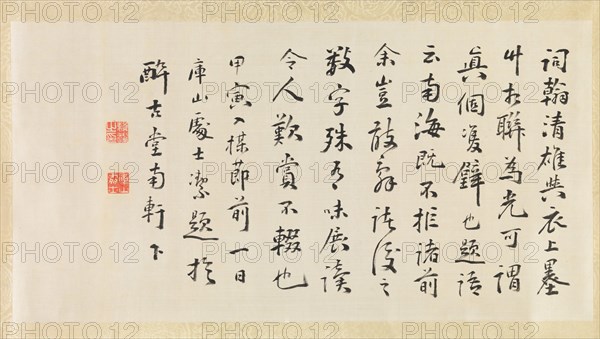 詞翰清雄與衣上墨
竹相聯為光可謂
眞個雙璧也題語
云南海既不拒諸前
余豈敢辭諸後之
數字殊有味展讀
令人歎賞不輟也
甲寅入楳節前一日
庫山處士潔題於
醉古堂南軒下
PHOTO12